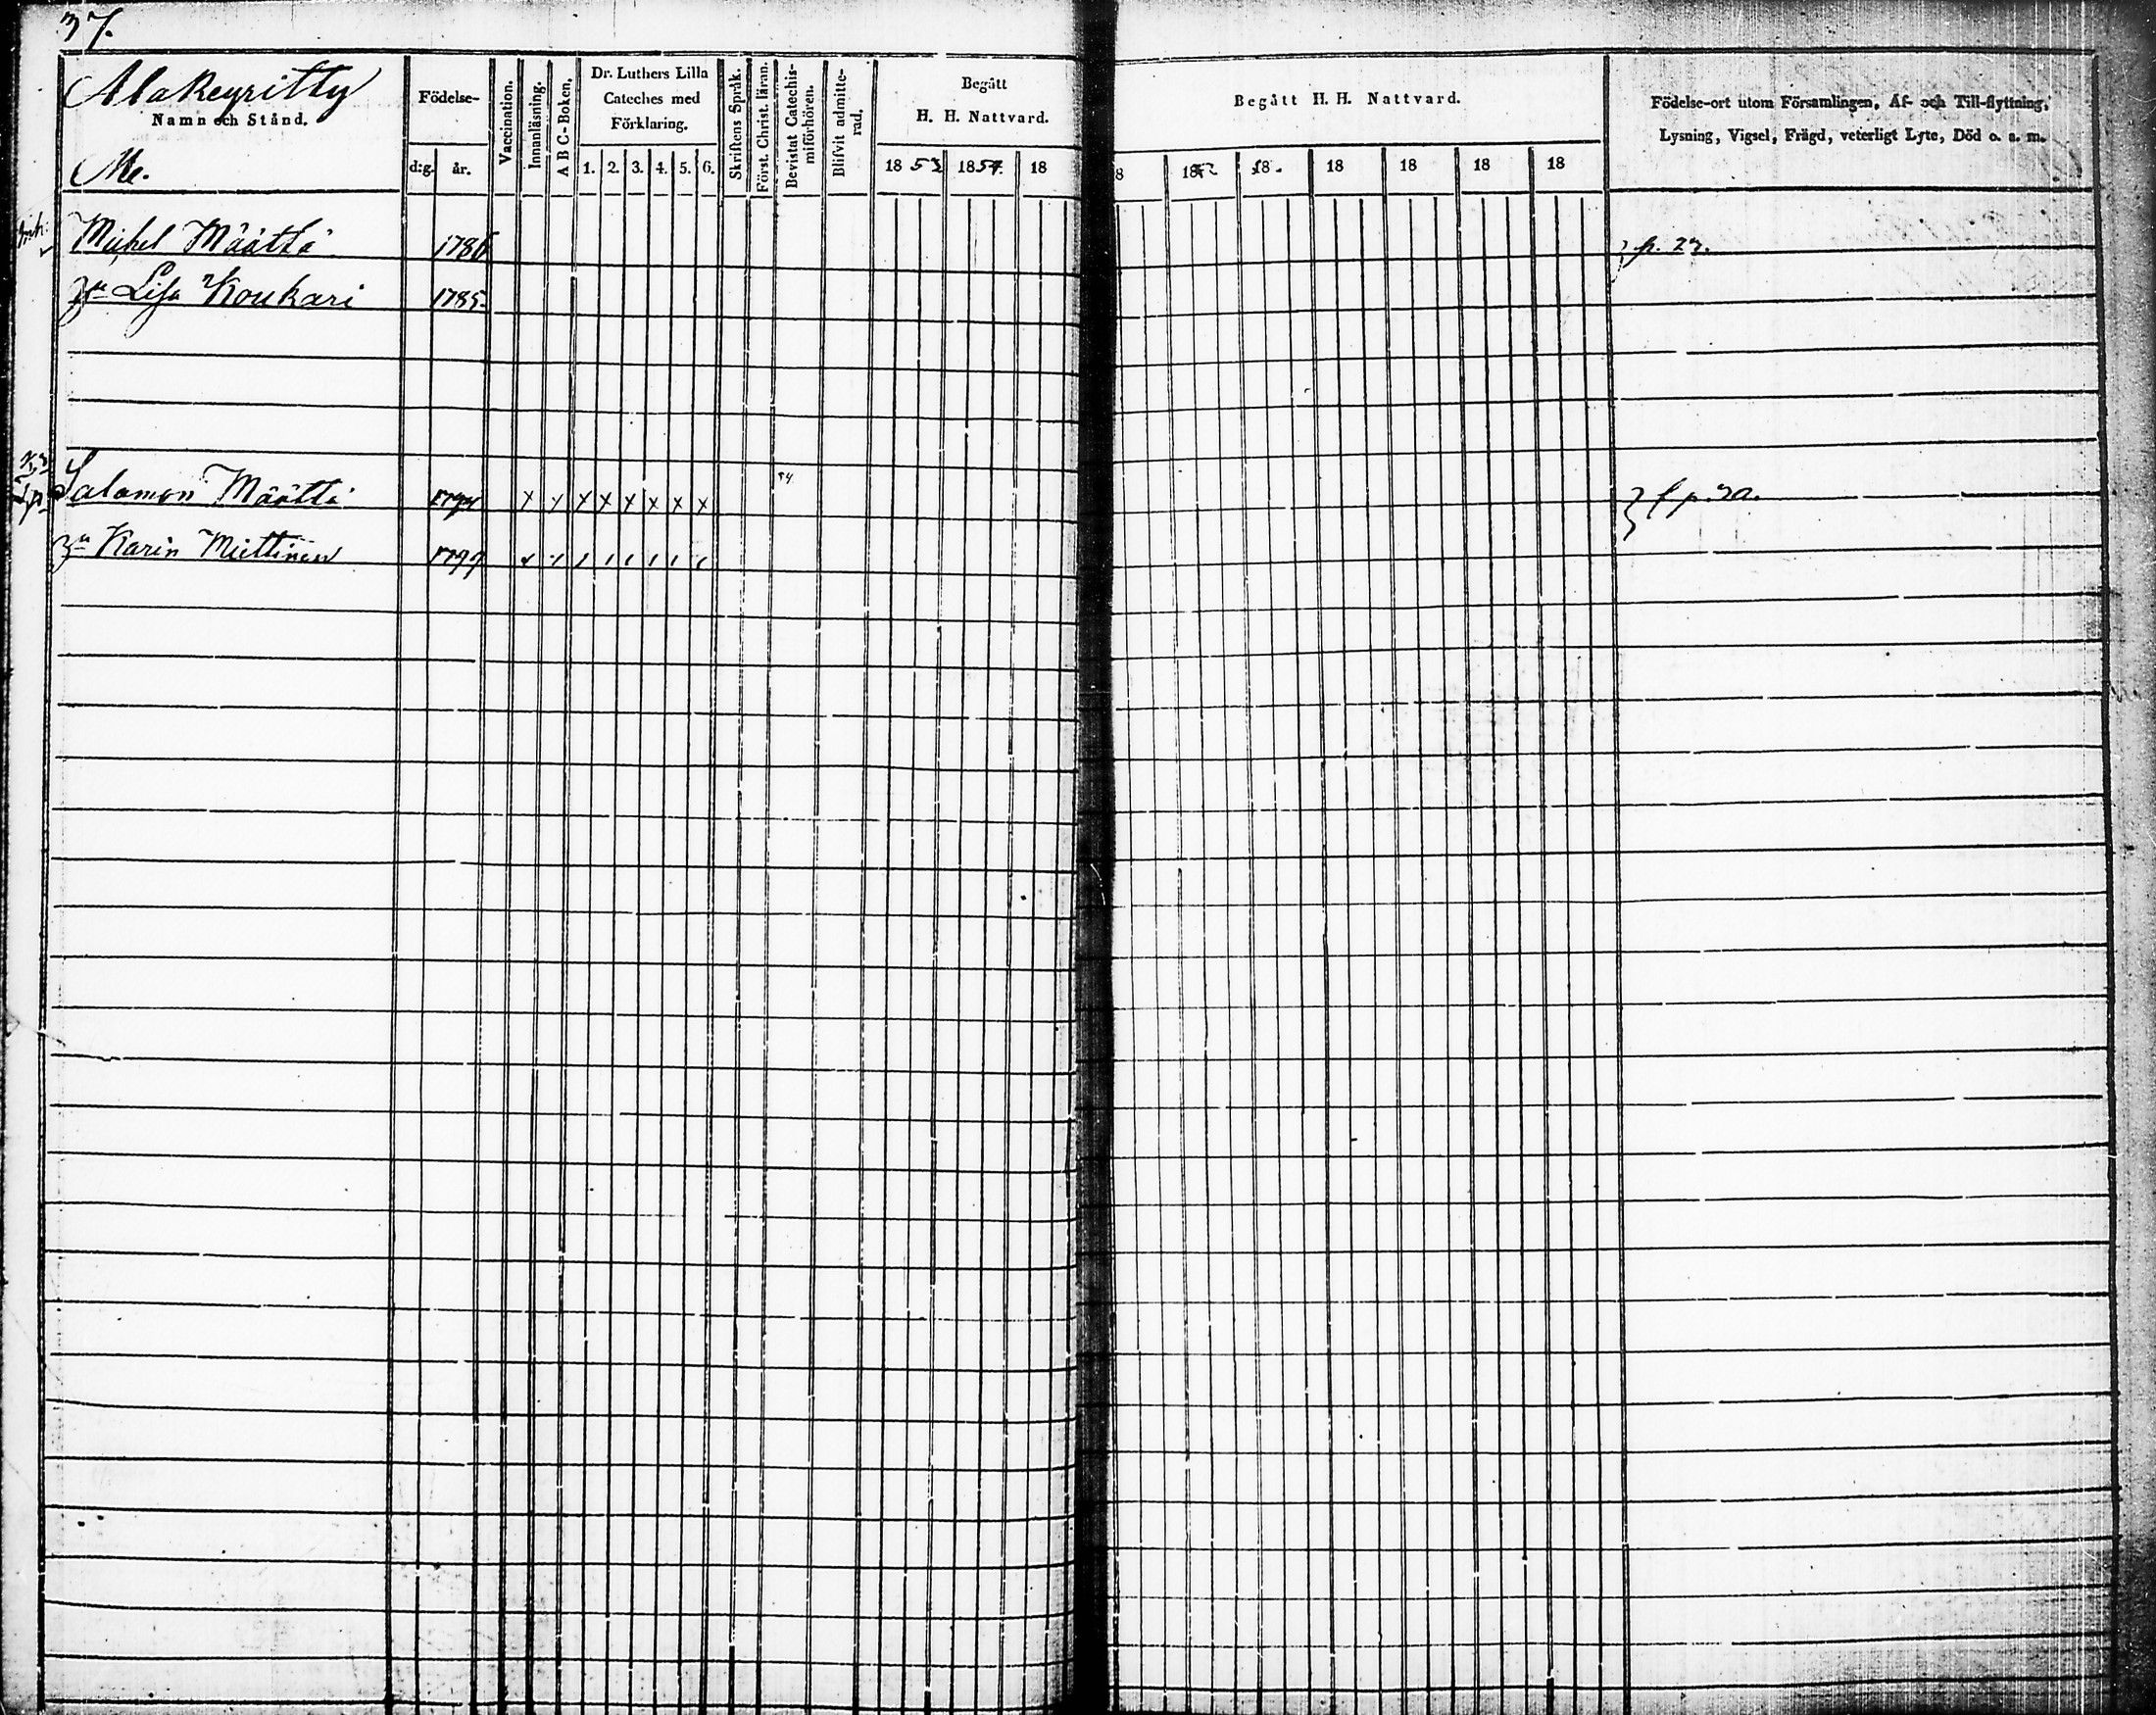 37.
Alakeyritty
Namn och Stånd.
Me.
Födelse-
d:g. år.
Vaccination.
Innanläsning.
A B C-Boken.
Dr. Luthers Lilla
Cateches med
Förklaring.
1. 2. 3. 4. 5. 6.
Skriftens Språk.
Först. Christ. läran.
Bevistat Catechis-
miförhören.
Blifvit admitte-
rad.
Begått
H. H. Nattvard.
1853 1854 18
Begått H. H. Nattvard.
8 1852 18 18 18 18 18
Födelse-ort utom Församlingen, Af- och Till-flyttning,
Lysning, Vigsel, Frägd, veterligt Lyte, Död o. s. m.
Michel Määttä 1786 p. 27.
Lisa Koukari 1785
Salamon Määttä x x x x x x x x 54
Karin Miettinen 1799